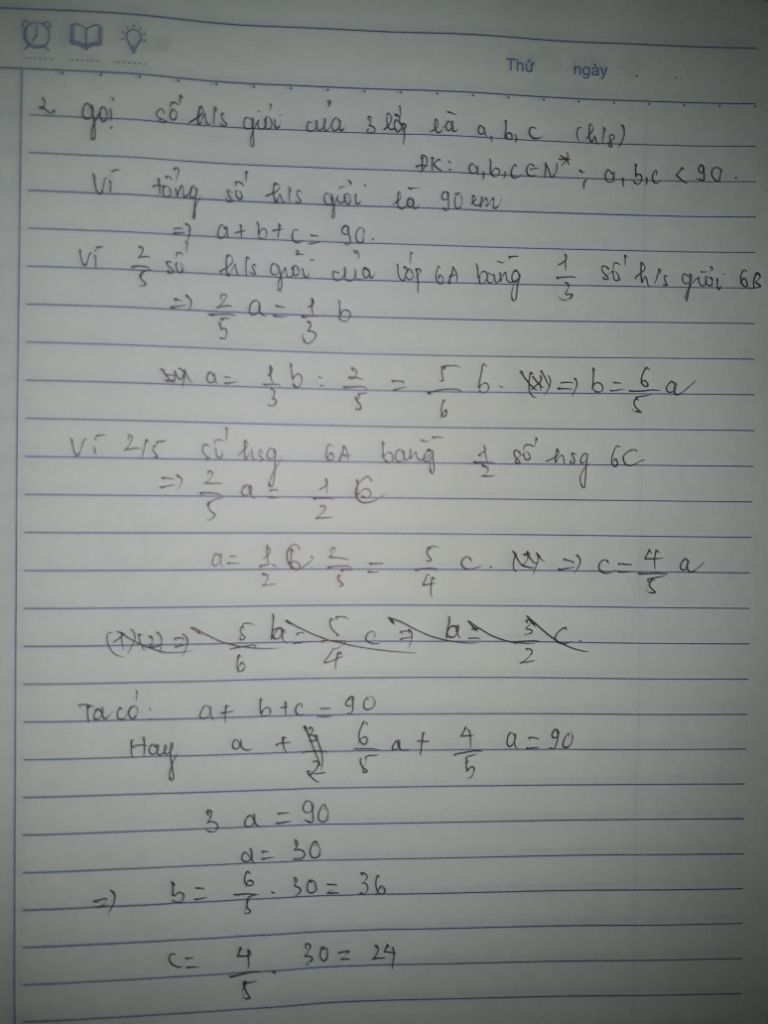 Thứ ngày
2 gọi số h/s giỏi của 3 lớp là a, b, c (h/s)
ĐK: a,b,c ∈ N*; a,b,c < 90.
Vì tổng số h/s giỏi là 90 em
=> a+b+c = 90.
Vì 2/5 số h/s giỏi của lớp 6A bằng 1/3 số h/s giỏi 6B
=> 2/5 a = 1/3 b
a = 1/3 b : 2/5 = 5/6 b. => b = 6/5 a
Vì 2/5 số hsg 6A bằng 1/2 số hsg 6C
=> 2/5 a = 1/2 C
a = 1/2 C : 2/5 = 5/4 c. => c = 4/5 a
(1)(2) => 5/6 b = 5/4 c => b = 3/2 c.
Ta có: a + b + c = 90
Hay a + 6/5 a + 4/5 a = 90
3 a = 90
a = 30
=> b = 6/5 . 30 = 36
c = 4/5 . 30 = 24